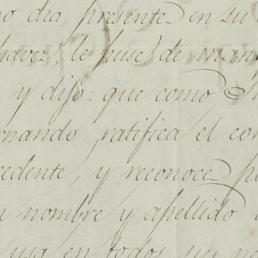 o dia, presente en su
chavez le puse de man
, y dijo: que como
rnando, ratifica el con
cedente, y reconoce p
u nombre y apellido
usa en todos sus